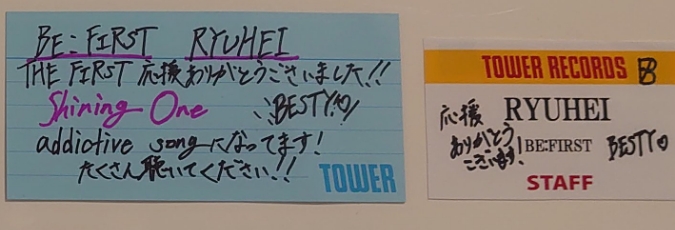 BE:FIRST RYUHEI
THE FIRST 応援ありがとうございました!!
Shining One BESTY♡
addictive songになってます!
たくさん聴いてください!!
TOWER
TOWER RECORDS B
応援 RYUHEI
ありがとう
ございます! BE:FIRST BESTY♡
STAFF